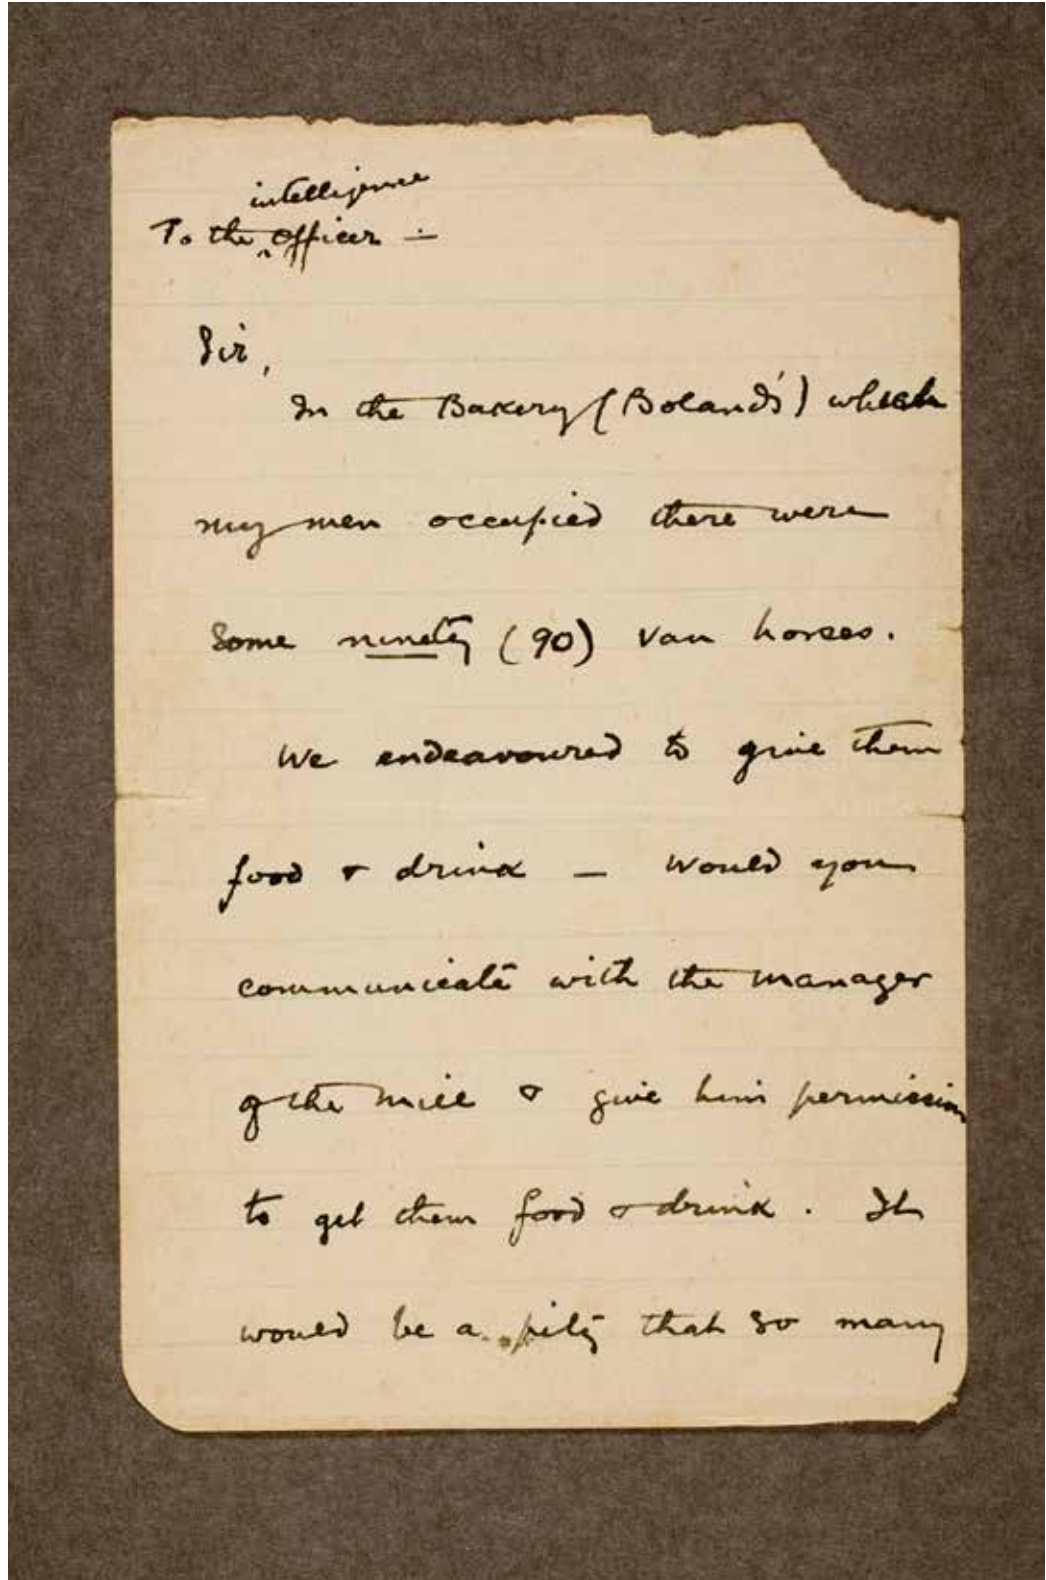 intelligence
To the ‸ Officer —
Sir,
In the Bakery (Boland's) which
my men occupied there were
some ninety (90) van horses.
We endeavoured to give them
food & drink — would you
communicate with the manager
of the mill & give him permission
to get them food & drink. It
would be a pity that so many